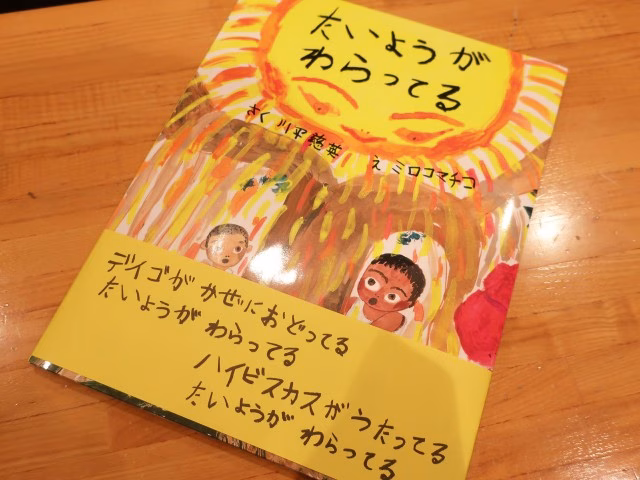 たいようが
わらってる
さく 川平慈英 え ミロコマチコ
デイゴが かぜに おどってる
たいようが わらってる
ハイビスカスが うたってる
たいようが わらってる